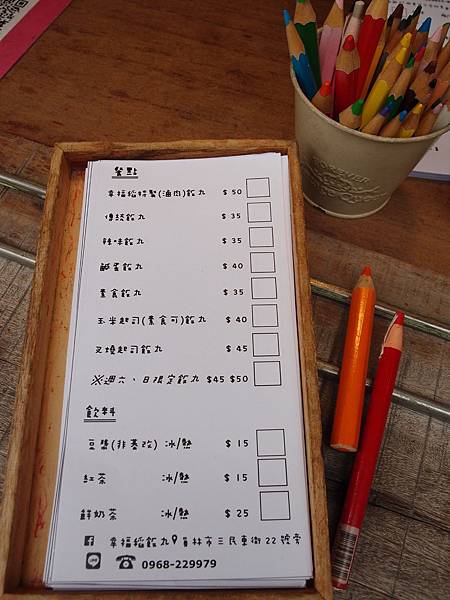 餐點
幸福稻特製(滷肉)飯丸 $50
傳統飯丸 $35
辣味飯丸 $35
鹹蛋飯丸 $40
素食飯丸 $35
玉米起司(素食可)飯丸 $40
叉燒起司飯丸 $45
※週六、日限定飯丸 $45 $50
飲料
豆漿(非基改) 冰/熱 $15
紅茶 冰/熱 $15
鮮奶茶 冰/熱 $25
幸福稻飯丸 員林市三民東街22號旁
LINE 0968-229979